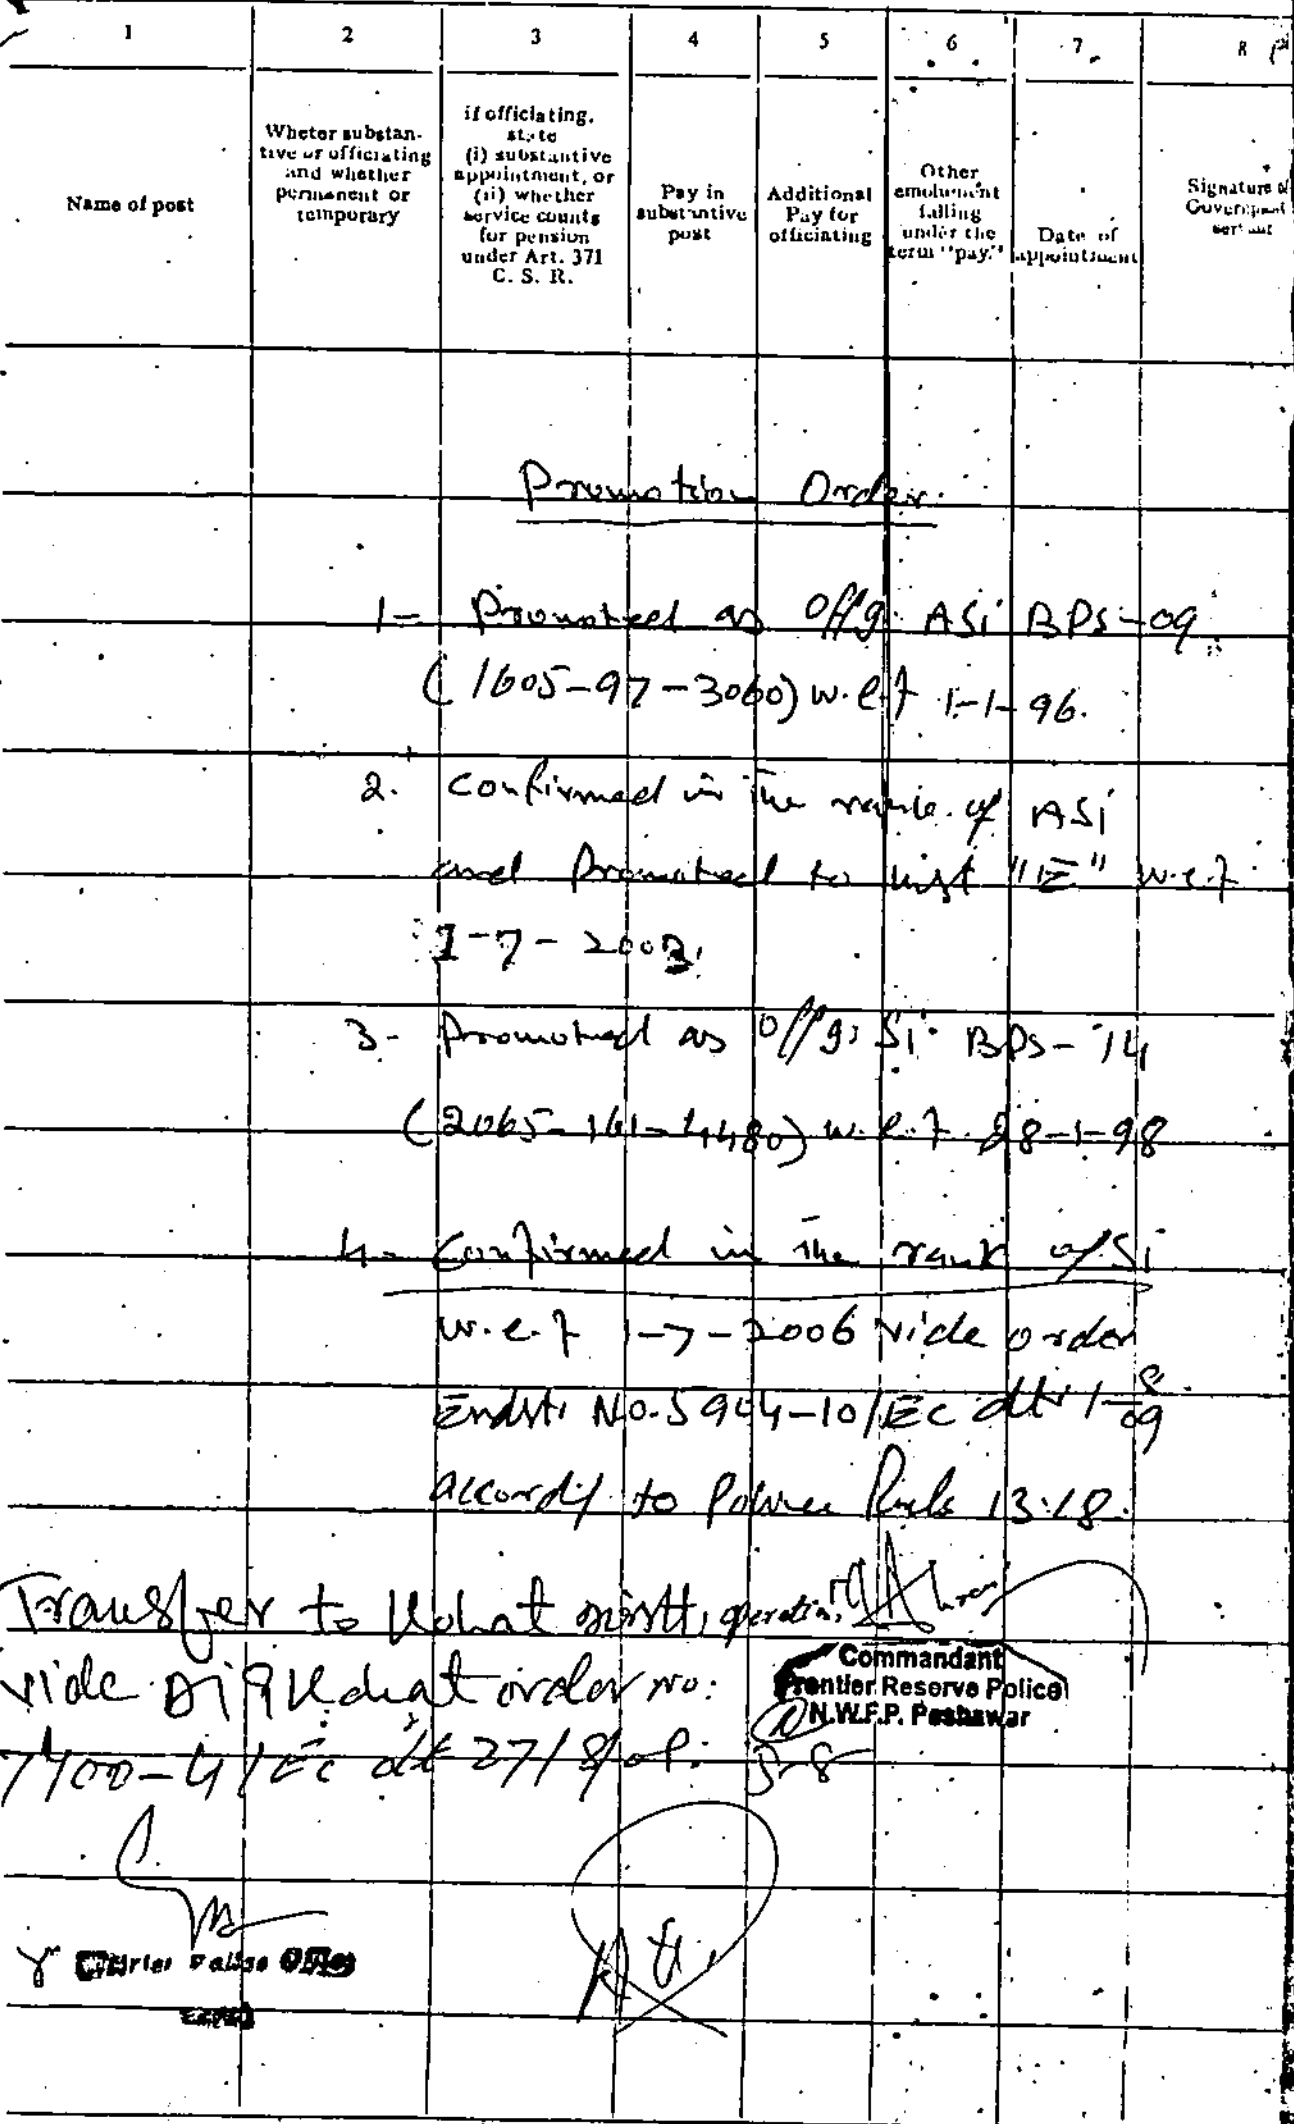 1 2 3 4 5 6 7 8
Name of post
Wheter substan-
tive or officiating
and whether
permanent or
temporary
if officiating,
state
(i) substantive
appointment, or
(ii) whether
service counts
for pension
under Art. 371
C. S. R.
Pay in
substantive
post
Additional
Pay for
officiating
Other
emolument
falling
under the
term "pay."
Date of
appointment
Signature of
Government
servant
Promotion Order.
1= Promoted as Offg: ASI BPS-09
(1605-97-3060) w.e.f 1-1-96.
2. Confirmed in the rank of ASI
and Promoted to list "E" w.e.f
1-7-2003.
3- Promoted as Offg: SI BPS-14
(2065-161-4480) w.e.f 28-1-98
4- Confirmed in the rank of SI
w.e.f 1-7-2006 vide order
Endst: No. 5904-10/EC dt: 1-8-09
according to Police Rules 13.18.
Transfer to Kohat Distt, operation,
vide DIG Kohat order no:
7400-4/EC dt 27/8/09.
Commandant
Frontier Reserve Police
N.W.F.P. Peshawar
5-8
Police